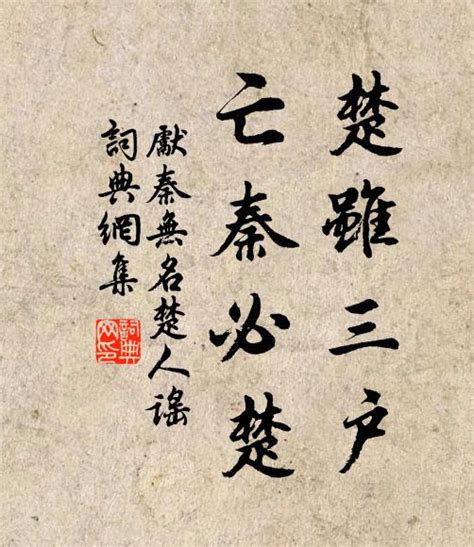 楚雖三户
亡秦必楚
獻秦無名楚人謠
詞典網集
詞典